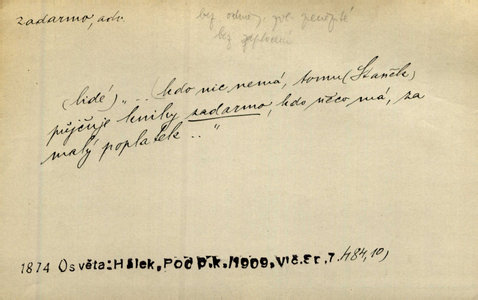 zadarmo, adv.
bez odměny, zvl. peněžité
bez zaplacení
(lidé) „... (kdo nic nemá, tomu (Staněk)
půjčuje knihy zadarmo, kdo něco má, za
malý poplatek..."
1874 Osvěta: Hálek, Pod p.k. 1909, Vlč.Er, 7. 484,10)